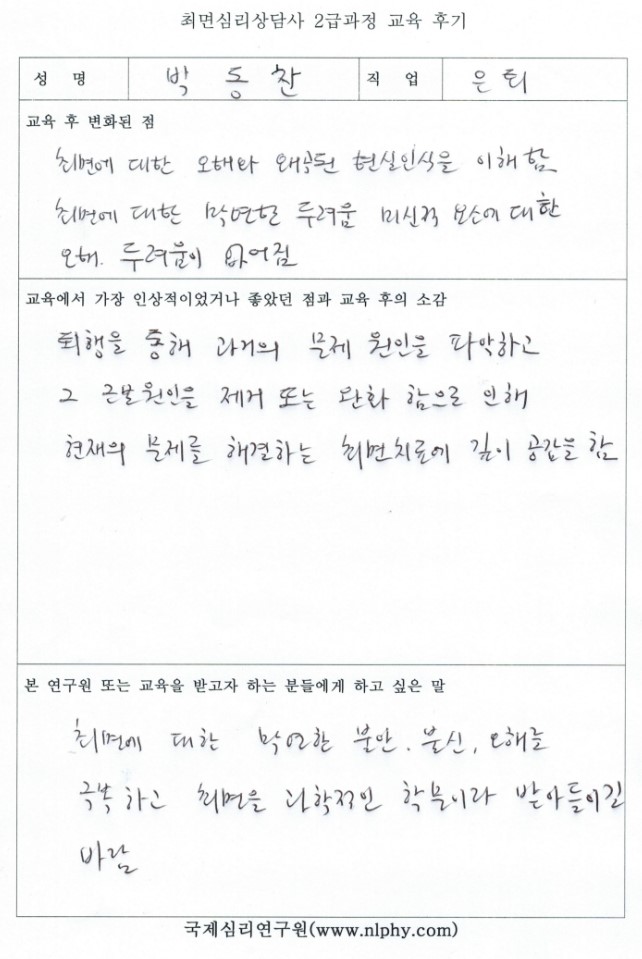 최면심리상담사 2급과정 교육 후기
성 명 박 동 찬 직 업 은 퇴
교육 후 변화된 점
최면에 대한 오해와 왜곡된 현실인식을 이해 함
최면에 대한 막연한 두려움 미신적 요소에 대한
오해. 두려움이 없어짐
교육에서 가장 인상적이었거나 좋았던 점과 교육 후의 소감
퇴행을 통해 과거의 문제 원인을 파악하고
그 근본원인을 제거 또는 완화 함으로 인해
현재의 문제를 해결하는 최면치료에 깊이 공감을 함
본 연구원 또는 교육을 받고자 하는 분들에게 하고 싶은 말
최면에 대한 막연한 불안. 불신, 오해를
극복하고 최면을 과학적인 학문이라 받아들이길
바람
국제심리연구원(www.nlphy.com)